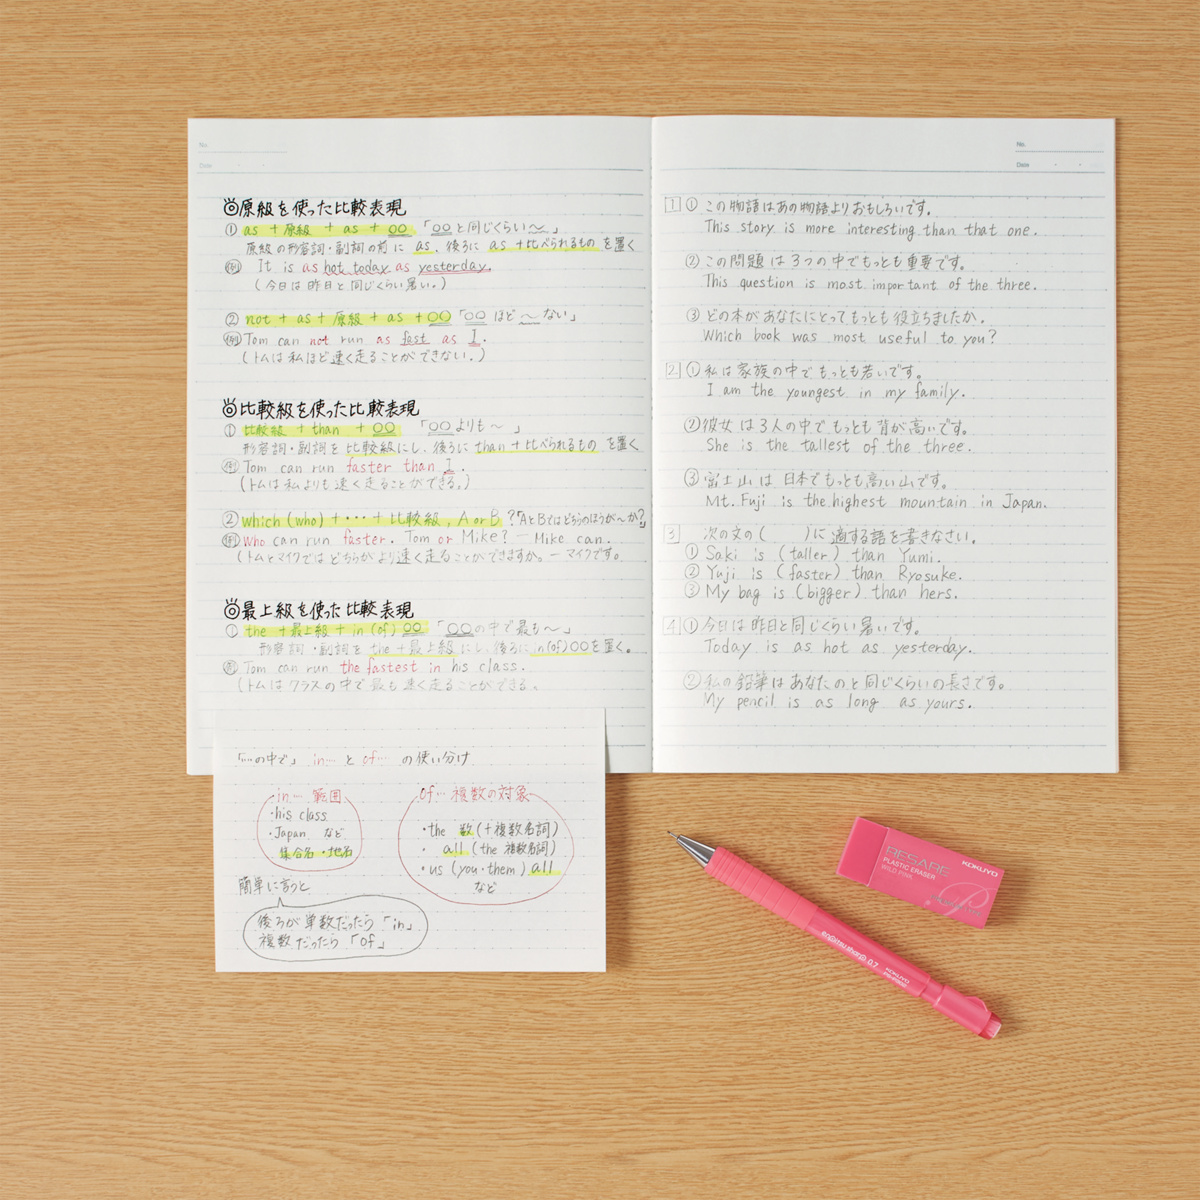 No.
Date
◎原級を使った比較表現
① as + 原級 + as + ○○ 「○○と同じくらい〜」
原級の形容詞・副詞の前に as、後ろに as +比べられるもの を置く
例 It is as hot today as yesterday.
(今日は昨日と同じくらい暑い。)
② not + as + 原級 + as + ○○ 「○○ほど〜ない」
例 Tom can not run as fast as I.
(トムは私ほど速く走ることができない。)
◎比較級を使った比較表現
① 比較級 + than + ○○ 「○○よりも〜」
形容詞・副詞を比較級にし、後ろに than +比べられるもの を置く
例 Tom can run faster than I.
(トムは私よりも速く走ることができる。)
② which (who) + ・・・ + 比較級, A or B ?「AとBではどちらのほうが〜か?」
例 Who can run faster. Tom or Mike? — Mike can.
(トムとマイクではどちらがより速く走ることができますか。— マイクです。
◎最上級を使った比較表現
① the +最上級 + in (of) ○○ 「○○の中で最も〜」
形容詞・副詞を the +最上級 にし、後ろに in(of)○○を置く。
例 Tom can run the fastest in his class.
(トムはクラスの中で最も速く走ることができる。
「…の中で」 in… と of… の使い分け
in… 範囲
・his class
・Japan など
集合名・地名
of… 複数の対象
・the 数 (+複数名詞)
・ all (the 複数名詞)
・us (you・them) all
など
簡単に言うと
後ろが単数だったら「in」
複数だったら「of」
No.
Date
1 ① この物語はあの物語よりおもしろいです。
This story is more interesting than that one.
② この問題は3つの中でもっとも重要です。
This question is most important of the three.
③ どの本があなたにとってもっとも役立ちましたか。
Which book was most useful to you?
2. ① 私は家族の中でもっとも若いです。
I am the youngest in my family.
② 彼女は3人の中でもっとも背が高いです。
She is the tallest of the three.
③ 富士山は日本でもっとも高い山です。
Mt. Fuji is the highest mountain in Japan.
3 次の文の( )に適する語を書きなさい。
① Saki is (taller) than Yumi.
② Yuji is (faster) than Ryosuke.
③ My bag is (bigger) than hers.
4 ① 今日は昨日と同じくらい暑いです。
Today is as hot as yesterday.
② 私の鉛筆はあなたのと同じくらいの長さです。
My pencil is as long as yours.
RESARE
PLASTIC ERASER
WILD PINK
KOKUYO
enpitsu sharp 0.7
KOKUYO